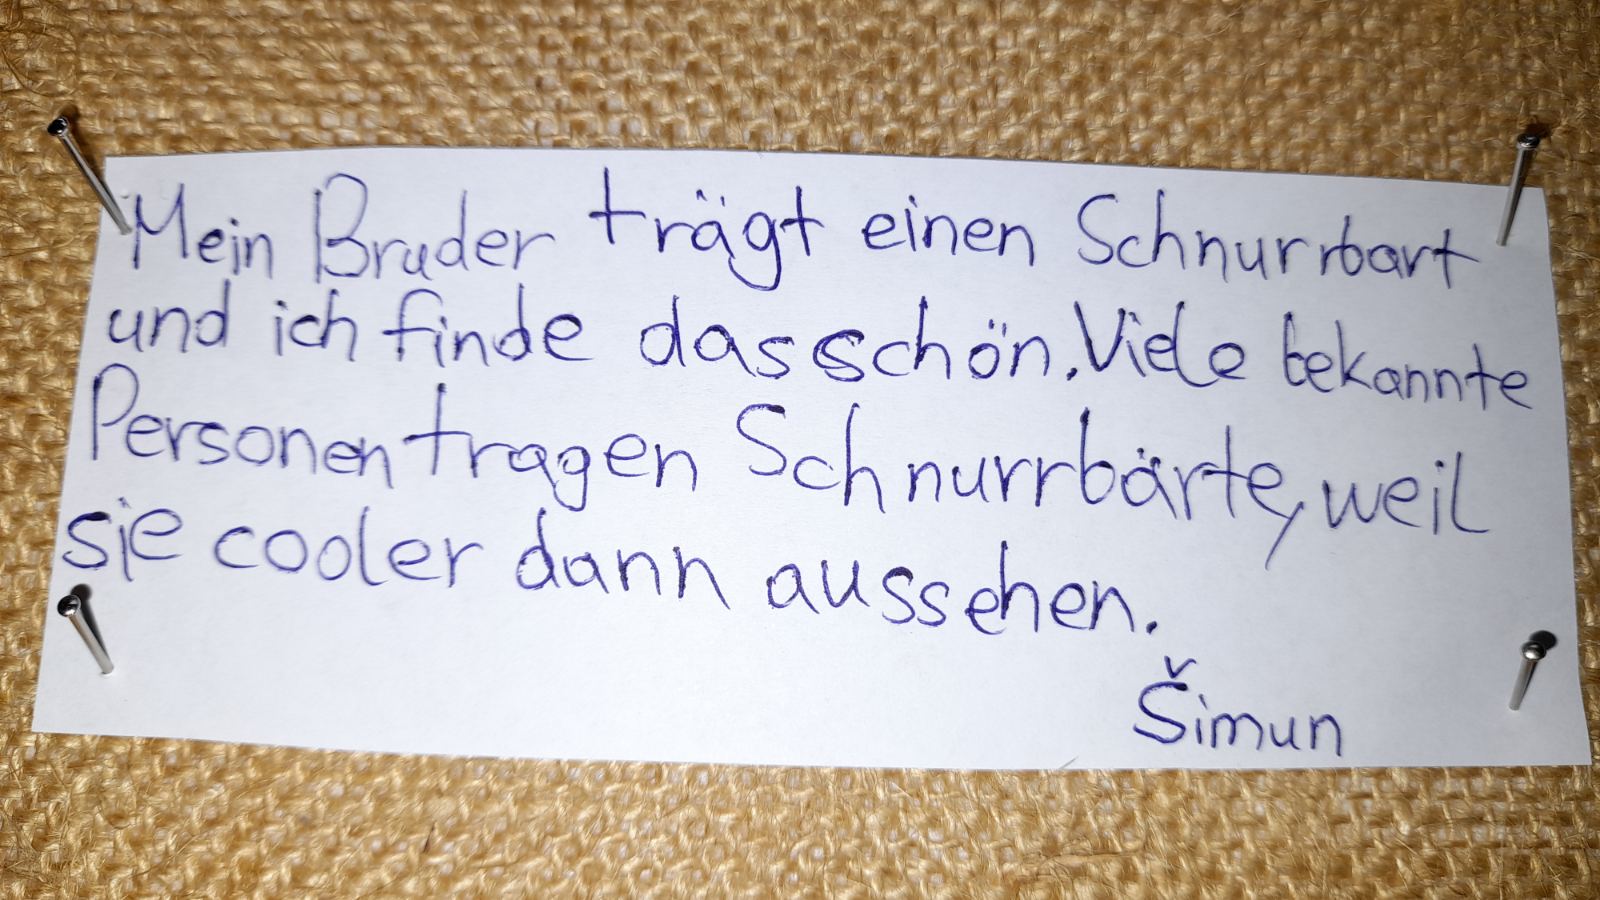 Mein Bruder trägt einen Schnurrbart
und ich finde das schön. Viele bekannte
Personen tragen Schnurrbärte, weil
sie cooler dann aussehen.
Šimun